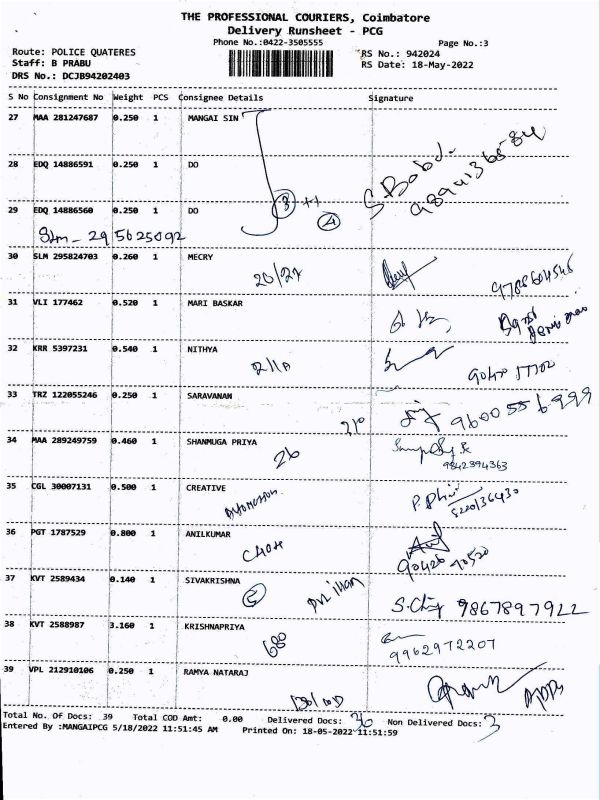 THE PROFESSIONAL COURIERS, Coimbatore
Delivery Runsheet - PCG
Phone No.:0422-3505555 Page No.:3
Route: POLICE QUATERES RS No.: 942024
Staff: B PRABU RS Date: 18-May-2022
DRS No.: DCJB94202403
S No Consignment No Weight PCS Consignee Details Signature
27 MAA 281247687 0.250 1 MANGAI SIN
28 EDQ 14886591 0.250 1 DO
S. Babu
29 EDQ 14886560 0.250 1 DO
3 ++ 4
Slm - 295625092
30 SLM 295824703 0.260 1 MECRY
31 VLI 177462 0.520 1 MARI BASKAR
32 KRR 5397231 0.540 1 NITHYA
33 TRZ 122055246 0.250 1 SARAVANAN
9600556999
34 MAA 289249759 0.460 1 SHANMUGA PRIYA
26
9842394363
35 CGL 30007131 0.500 1 CREATIVE
36 PGT 1787529 0.800 1 ANILKUMAR
90420 90520
37 KVT 2589434 0.140 1 SIVAKRISHNA
9867897922
38 KVT 2588987 3.160 1 KRISHNAPRIYA
680
9962972207
39 VPL 212910106 0.250 1 RAMYA NATARAJ
Total No. Of Docs: 39 Total COD Amt: 0.00 Delivered Docs: 36 Non Delivered Docs: 3
Entered By :MANGAIPCG 5/18/2022 11:51:45 AM Printed On: 18-05-2022 11:51:59